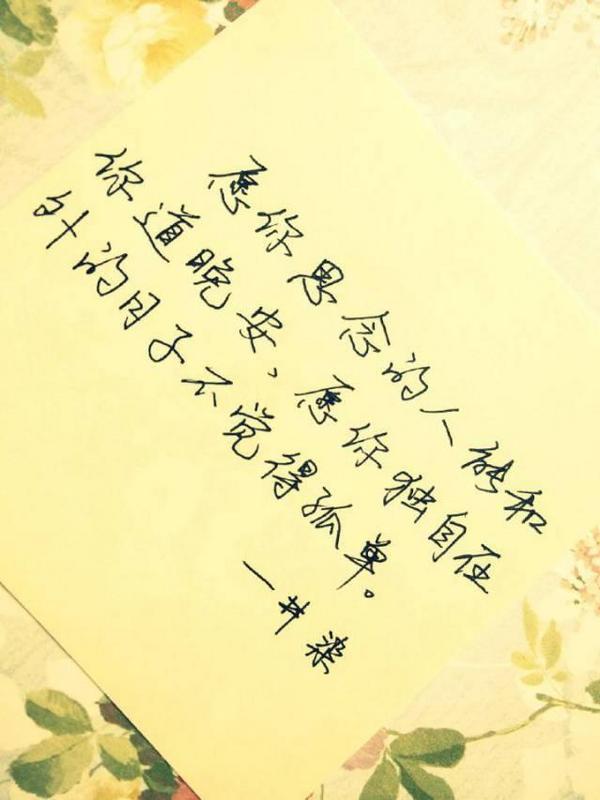 愿你思念的人能和
你道晚安，愿你独自在
外的日子不觉得孤单。
一井